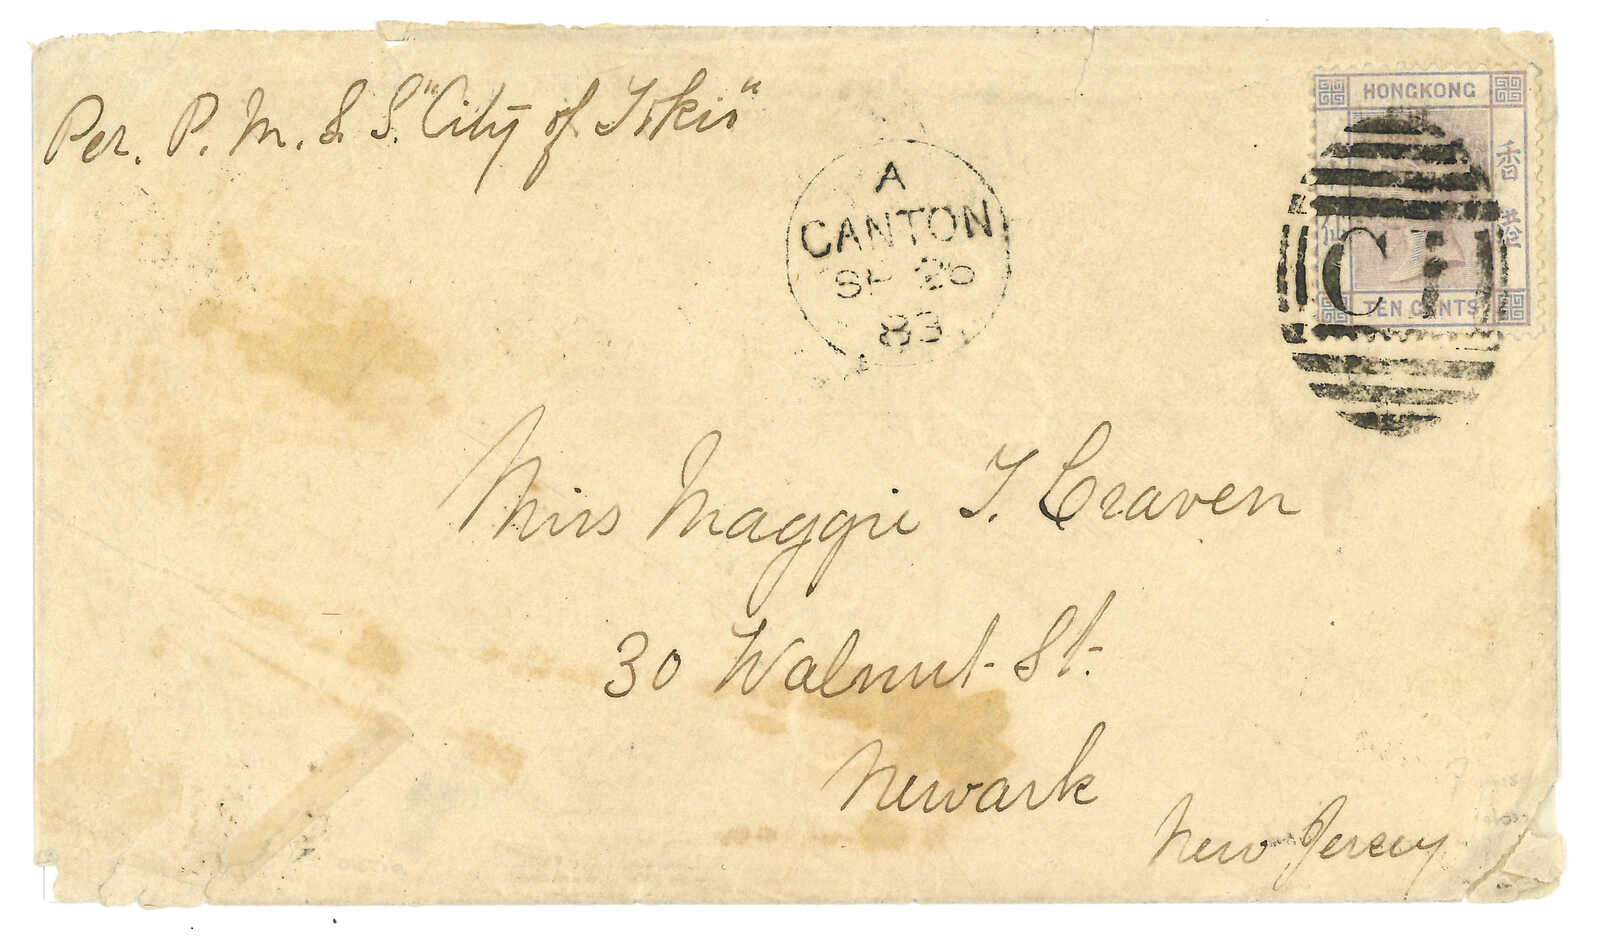 Per. P. M. S. S. "City of Tokio"
A
CANTON
SP 26
83
HONGKONG
香港
仙
TEN CENTS
C1
Miss Maggie T. Craven
30 Walnut St.
Newark
New Jersey